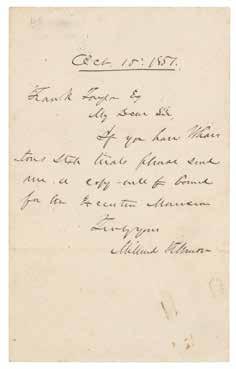 Oct 15. 1851.
Frank Taylor Esq
My Dear Sir
If you have Whar
tons State trials please send
me a copy - well bound
for the Executive Mansion
Truly yours
Millard Fillmore